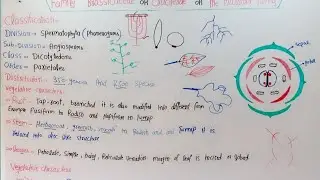 Family Brassicaceae or Cruciferae or The Mustard Family
Classification:-
Division = Spermatophyta (Phanerogams)
Sub-division = Angiosperms
Class = Dicotyledons
Order = Parietales
Distribution:- 350 genera and 2500 species
Vegetative characters:-
Root:- Tap-root, branched it is also modified into different form
Example Fusiform to Radish and Napiform to Turnip
Stem:- Herbaceous, to Radish and Turnip it is
reduced into disc like structure
Leaves:- Petiolate, Simple, margin of leaf is